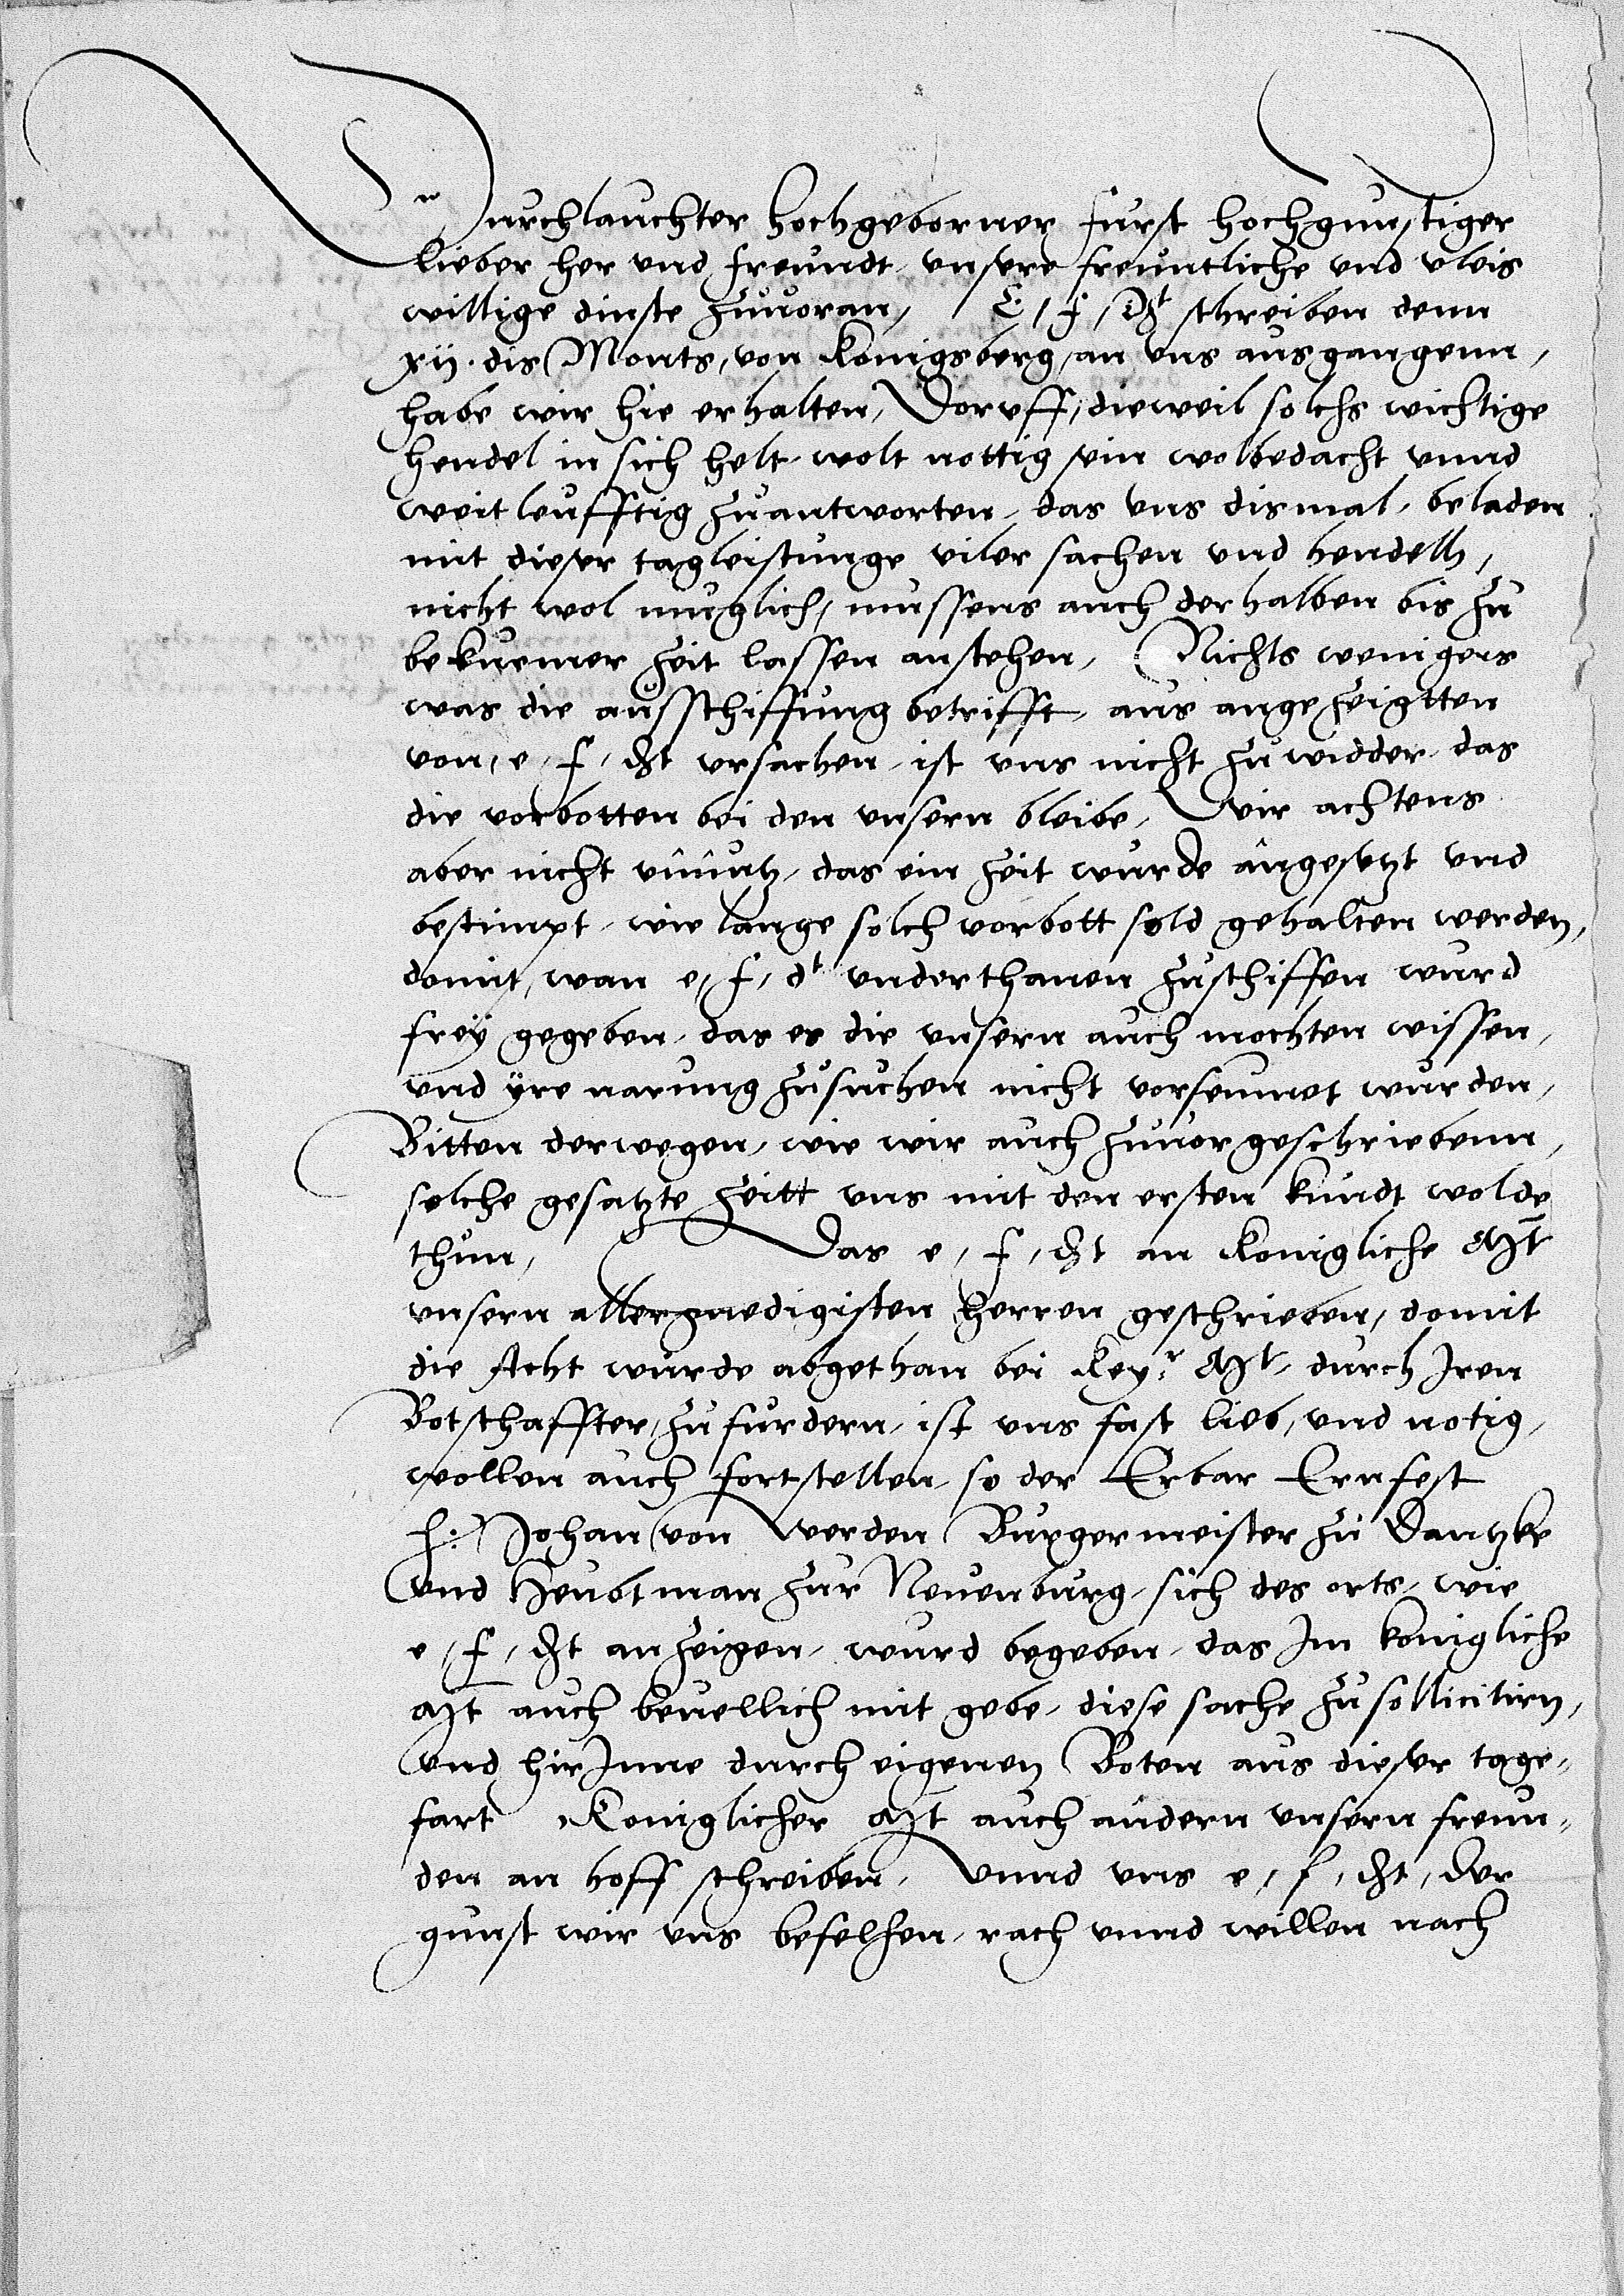 Durchlauchter hochgeborner furst hochgunstiger
lieber her und freundt, unsere freuntliche und vleis
willige dinste zuuoran, E/ f/ Dt schreiben denn
xij. dis Monts, von Konigsberg, an uns ausgangenn,
habe wir hie erhalten, Doruff, dieweil solchs wichtige
hendel in sich helt, wolt nottig sein wolbedacht unnd
weitleufftig zuantworten, das uns dismal, beladen
mit dieser tagleistunge viler sachen und hendell,
nicht wol muglich, mussens auch derhalben bis zu
bekuemer zeit lassen anstehen, Nichts wenigers
was die ausschiffung betrifft, aus angezeigtten
von, e/ f/ dt ursachen, ist uns nicht zuwidder, das
die vorbotten bei den unsern bleibe, Wir achtens
aber nicht unnutz, das ein zeit wurde angesetzt und
bestimpt, wie lange solch vorbott sold gehalten werden,
domit, wan e/ f/ dt underthanen zuschiffen wurd
frey gegeben, das es die unsern auch mochten wissen,
und yre narung zusuchen nicht vorseumet wurden,
Bitten derwegen, wie wir auch zuuor geschriebenn,
solche gesatzte zeitt uns mit den ersten kundt wolde
thun, Das e/ f/ dt an Konigliche Mt
unsern allergnedigisten herren geschrieben, domit
die Acht wurde abgethan bei Keyr Mt, durch Iren
Botschaffter, zufurdern, ist uns fast lieb, und notig,
wollen auch fortstellen, so der Erbar Ernfest
h: Johan von Werden Burgermeister zu Dantzke
und Heubtman zur Neuenburg, sich des orts, wie
e/ f/ dt anzeigen, wurd begeben, das Im konigliche
Mt auch beuellich mit gebe, diese sache zusollicitirn,
und hirInne durch eigenen Boten aus dieser tage-
fart Koniglicher Mt auch andern unsern freun-
den an hoff schreiben, Unnd uns e/ f/ dt, der
gunst wir uns befelhen, rath unnd willen nach